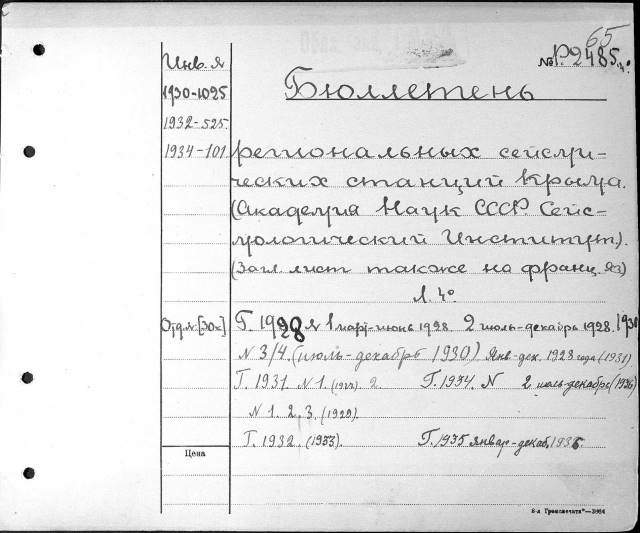 65
Инв. №
№ Р.2485.4°
1930-1025
Бюллетень
1932-525.
1934-101
региональных сейсми-
ческих станций Крыма.
(Академия Наук СССР. Сейс-
мологический Институт).
(Загл. лист также на франц. яз)
Л. 4°
Отд. № [30к]
Г. 1928 № 1 март-июнь 1928. 2 июль-декабрь 1928. 1930
N 3/4. (июль-декабрь 1930) Янв-дек. 1928 года (1931)
Г. 1931. N 1. 2. Г. 1934. N 2 июль-декабрь (1936)
N 1. 2. 3. (1929).
Г. 1932. (1933). Г. 1935 январ-декаб. 1936.
Цена
8-я Транспечати"—3664